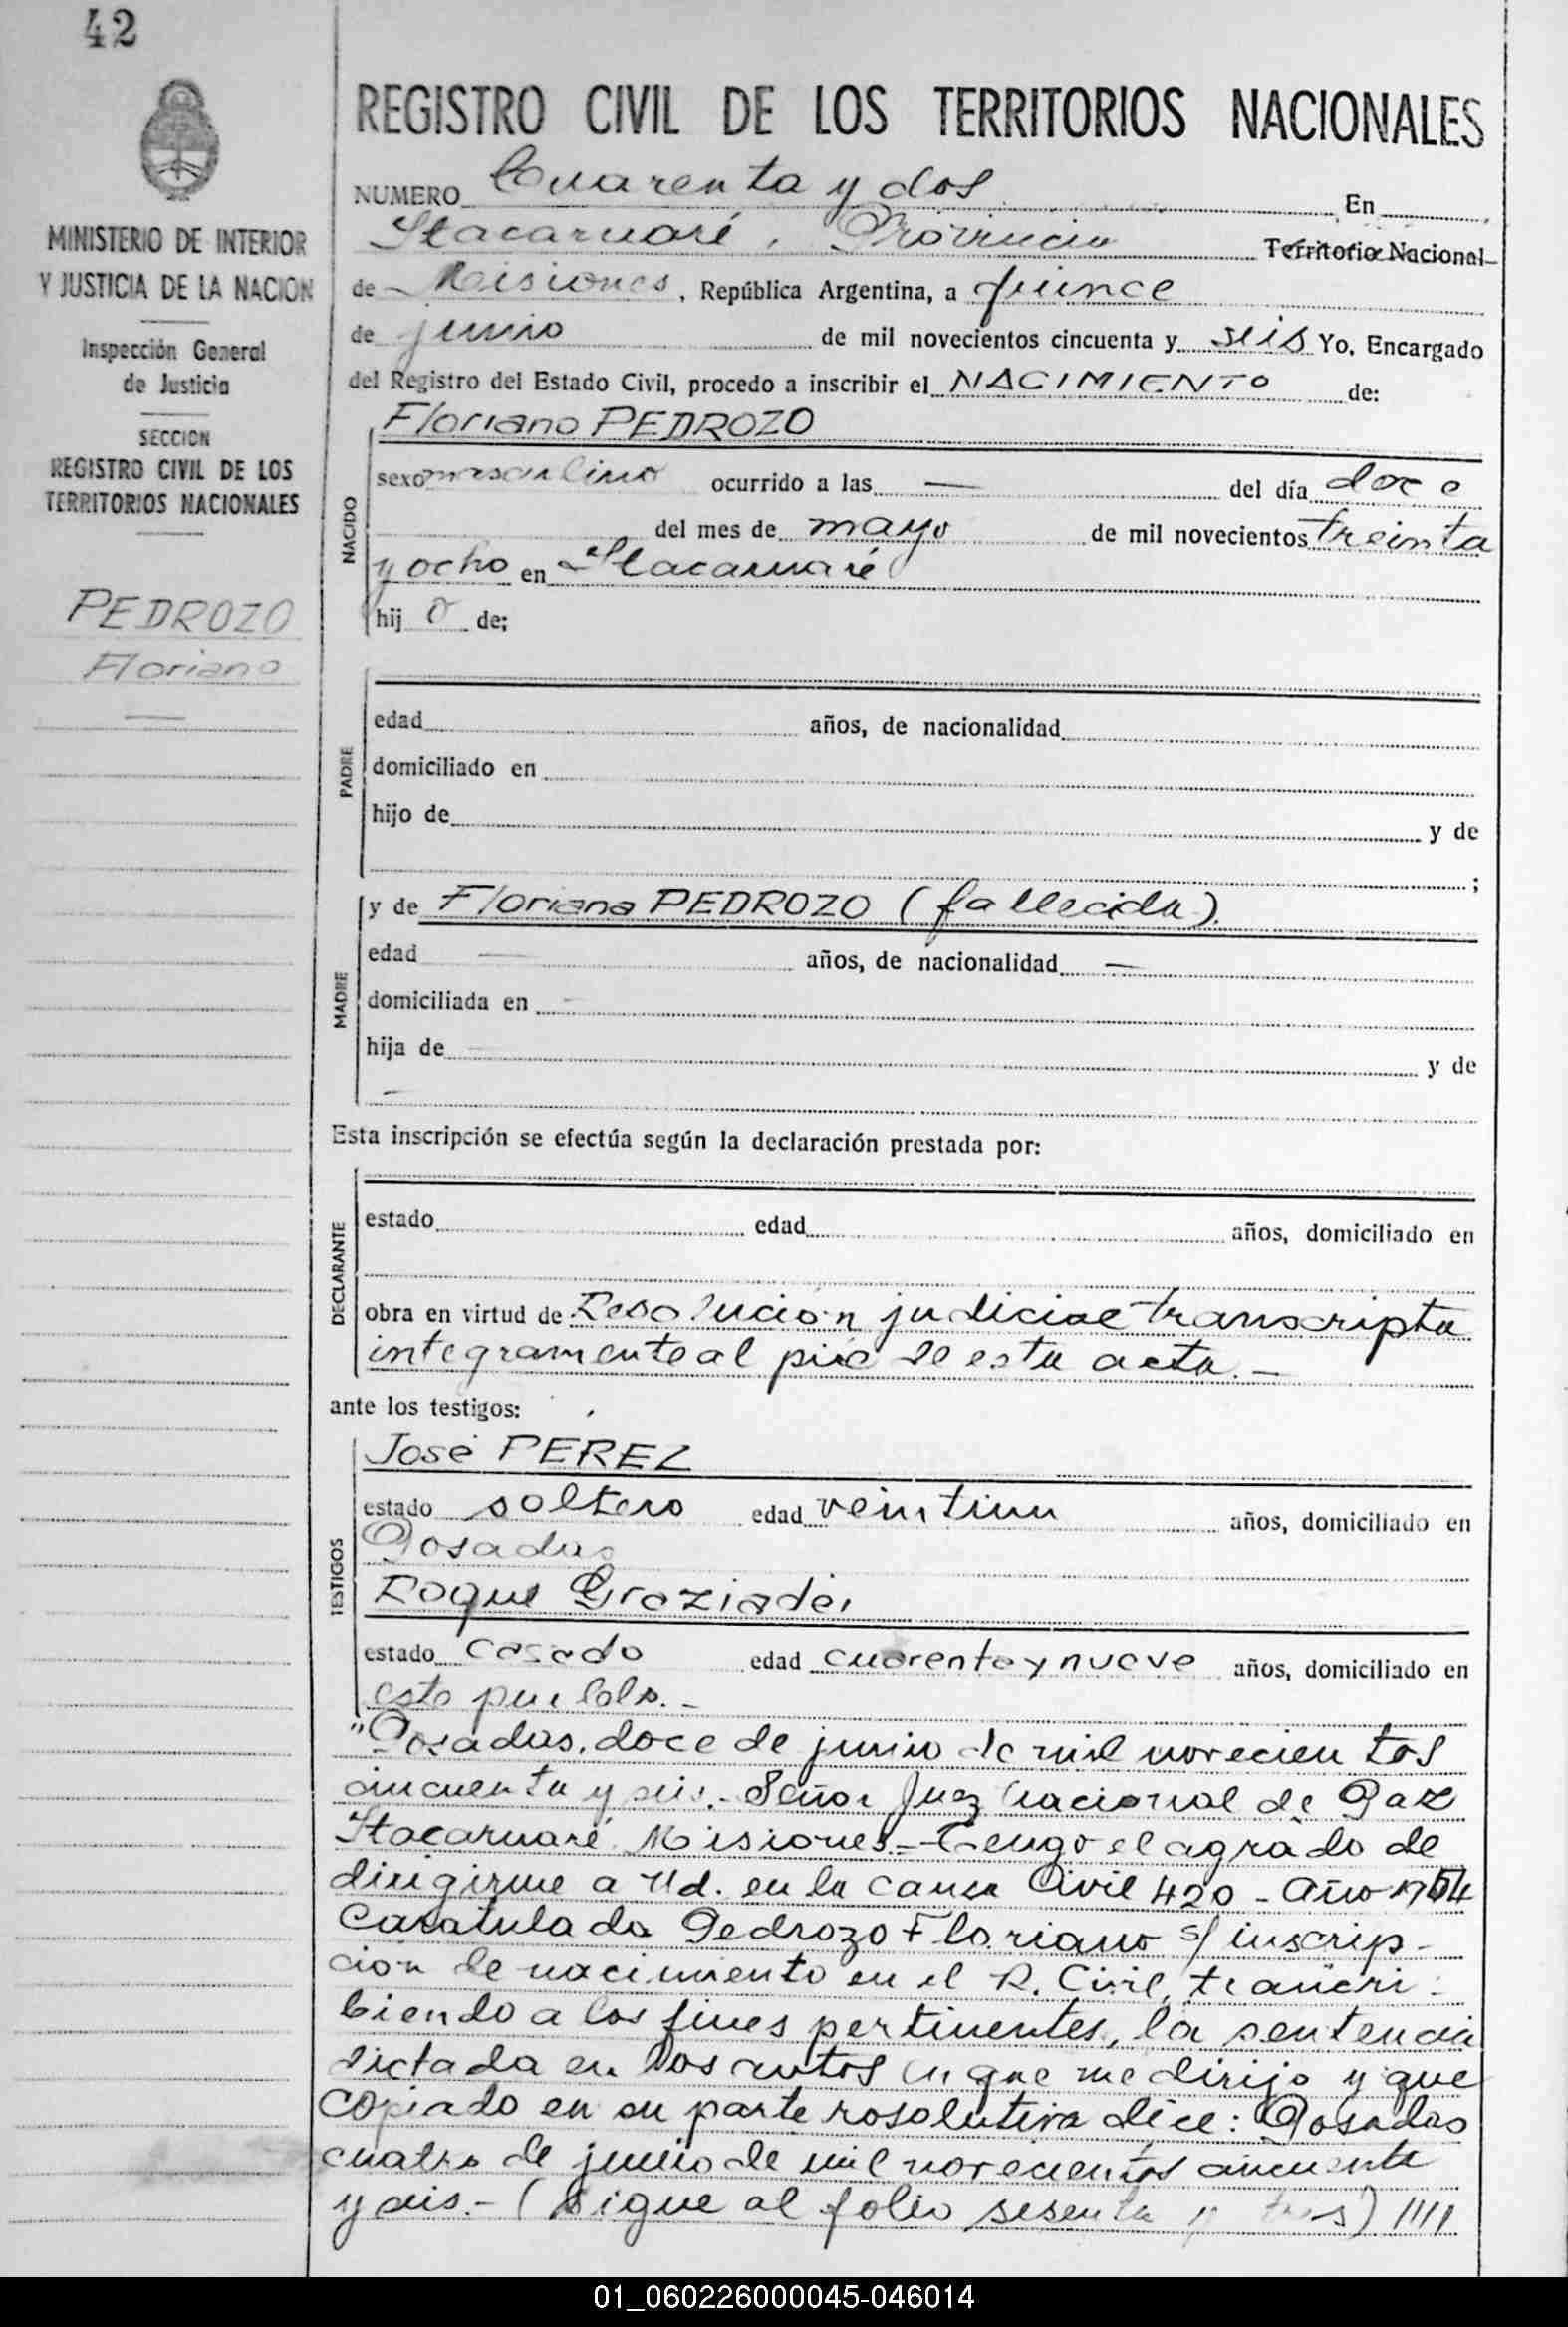 42
MINISTERIO DE INTERIOR
Y JUSTICIA DE LA NACION
Inspección General
de Justicia
SECCION
REGISTRO CIVIL DE LOS
TERRITORIOS NACIONALES
PEDROZO
Floriano
REGISTRO CIVIL DE LOS TERRITORIOS NACIONALES
NUMERO Cuarenta y dos En
Itacaruaré, Provincia Territorio Nacional
de Misiones, República Argentina, a quince
de junio de mil novecientos cincuenta y seis Yo, Encargado
del Registro del Estado Civil, procedo a inscribir el NACIMIENTO de:
Floriano PEDROZO
NACIDO
sexo masculino ocurrido a las — del día doce
del mes de mayo de mil novecientos treinta
y ocho en Itacaruaré
hij o de;
PADRE
edad años, de nacionalidad
domiciliado en
hijo de y de
;
MADRE
y de Floriana PEDROZO (fallecida).
edad — años, de nacionalidad —
domiciliada en —
hija de — y de
—
Esta inscripción se efectúa según la declaración prestada por:
DECLARANTE
estado edad años, domiciliado en
obra en virtud de Resolución judicial transcripta
integramente al pié de esta acta. —
ante los testigos:
TESTIGOS
José PEREZ
estado soltero edad veintiun años, domiciliado en
Posadas
Roque Graziadei
estado casado edad cuarenta y nueve años, domiciliado en
este pueblo. -
"Posadas, doce de junio de mil novecientos
cincuenta y seis.- Señor Juez Nacional de Paz
Itacaruaré Misiones.- Tengo el agrado de
dirigirme a Ud. en la causa Civil 420 - Año 1954
Caratulada Pedrozo Floriano s/ inscrip-
ción de nacimiento en el R. Civil, transcri-
biendo a los fines pertinentes, la sentencia
dictada en los autos en que me dirijo y que
copiado en su parte rosolutiva dice: Posadas
cuatro de junio de mil novecientos cincuenta
y seis.- (Sigue al folio sesenta y tres) ////
01_060226000045-046014